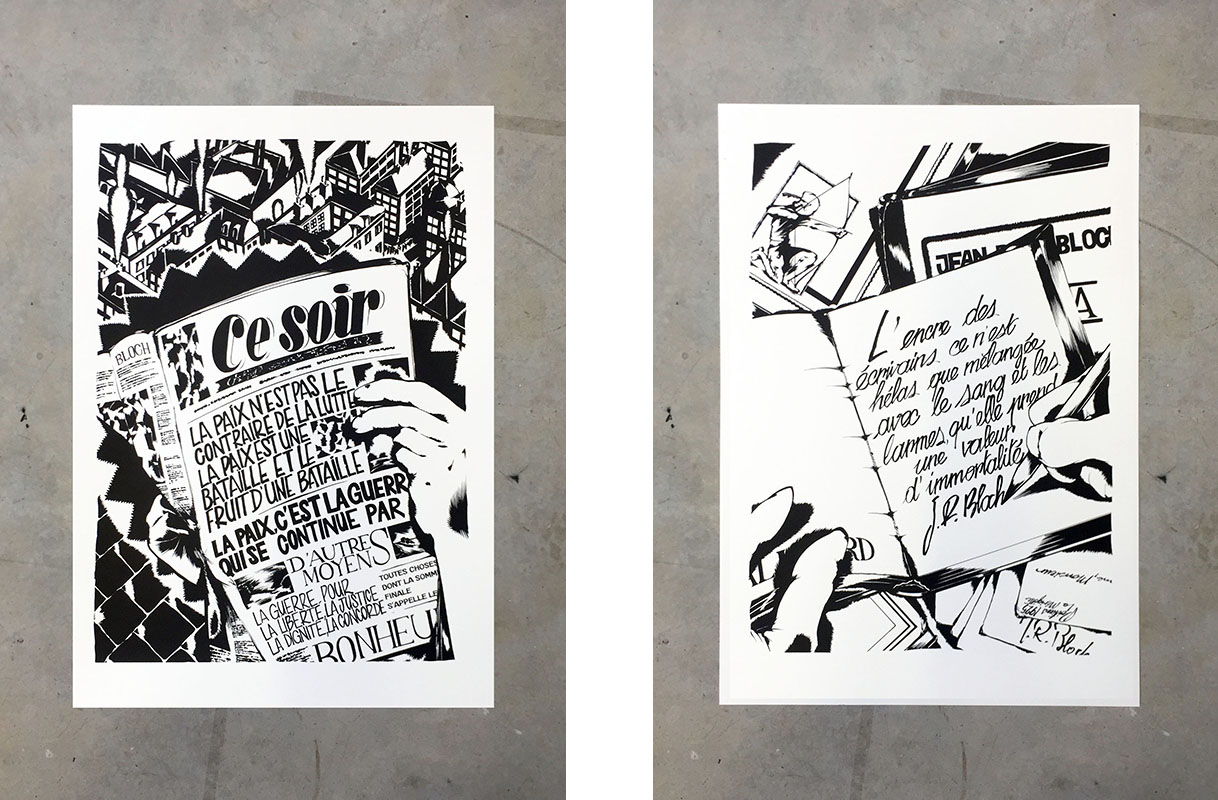 BLOCH
Ce soir
LA PAIX N'EST PAS LE
CONTRAIRE DE LA LUTTE
LA PAIX EST UNE
BATAILLE ET LE
FRUIT D'UNE BATAILLE
LA PAIX, C'EST LA GUERR
QUI SE CONTINUE PAR
D'AUTRES
MOYENS
LA GUERRE POUR
LA LIBERTE LA JUSTICE
LA DIGNITE, LA CONCORDE
TOUTES CHOSES
DONT LA SOMM
FINALE
S'APPELLE LE
BONHEU
JEAN BLOC
A
L'encre des
écrivains ce n'est
hélas que mélangée
avec le sang et les
larmes, qu'elle prend
une valeur
d'immortalité
J.R. Bloch
RD
Monsieur
J.R. Bloch